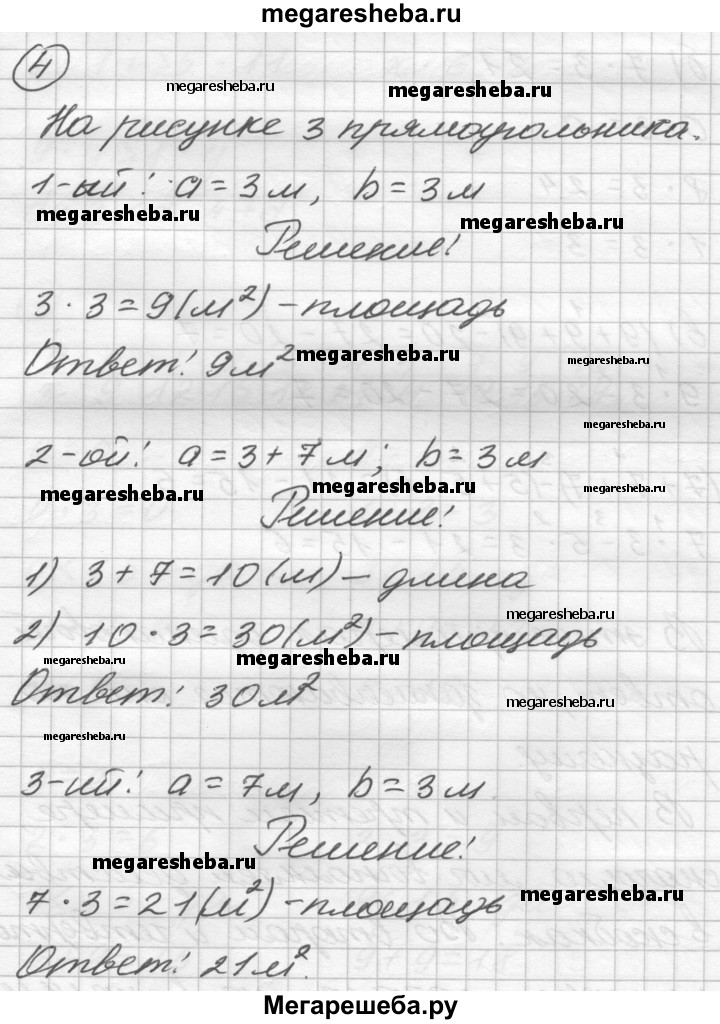 megaresheba.ru
4
megaresheba.ru megaresheba.ru
На рисунке 3 прямоугольника.
1-ый: a = 3 м, b = 3 м
megaresheba.ru megaresheba.ru
Решение:
3 · 3 = 9 (м²) - площадь
Ответ: 9 м²
megaresheba.ru megaresheba.ru
megaresheba.ru
2-ой: a = 3 + 7 м; b = 3 м
megaresheba.ru megaresheba.ru megaresheba.ru
Решение:
1) 3 + 7 = 10 (м) - длина
megaresheba.ru
2) 10 · 3 = 30 (м²) - площадь
megaresheba.ru megaresheba.ru
Ответ: 30 м²
megaresheba.ru
megaresheba.ru
3-ий: a = 7 м, b = 3 м
Решение:
megaresheba.ru
7 · 3 = 21 (м²) - площадь
megaresheba.ru
Ответ: 21 м².
Мегарешеба.ру